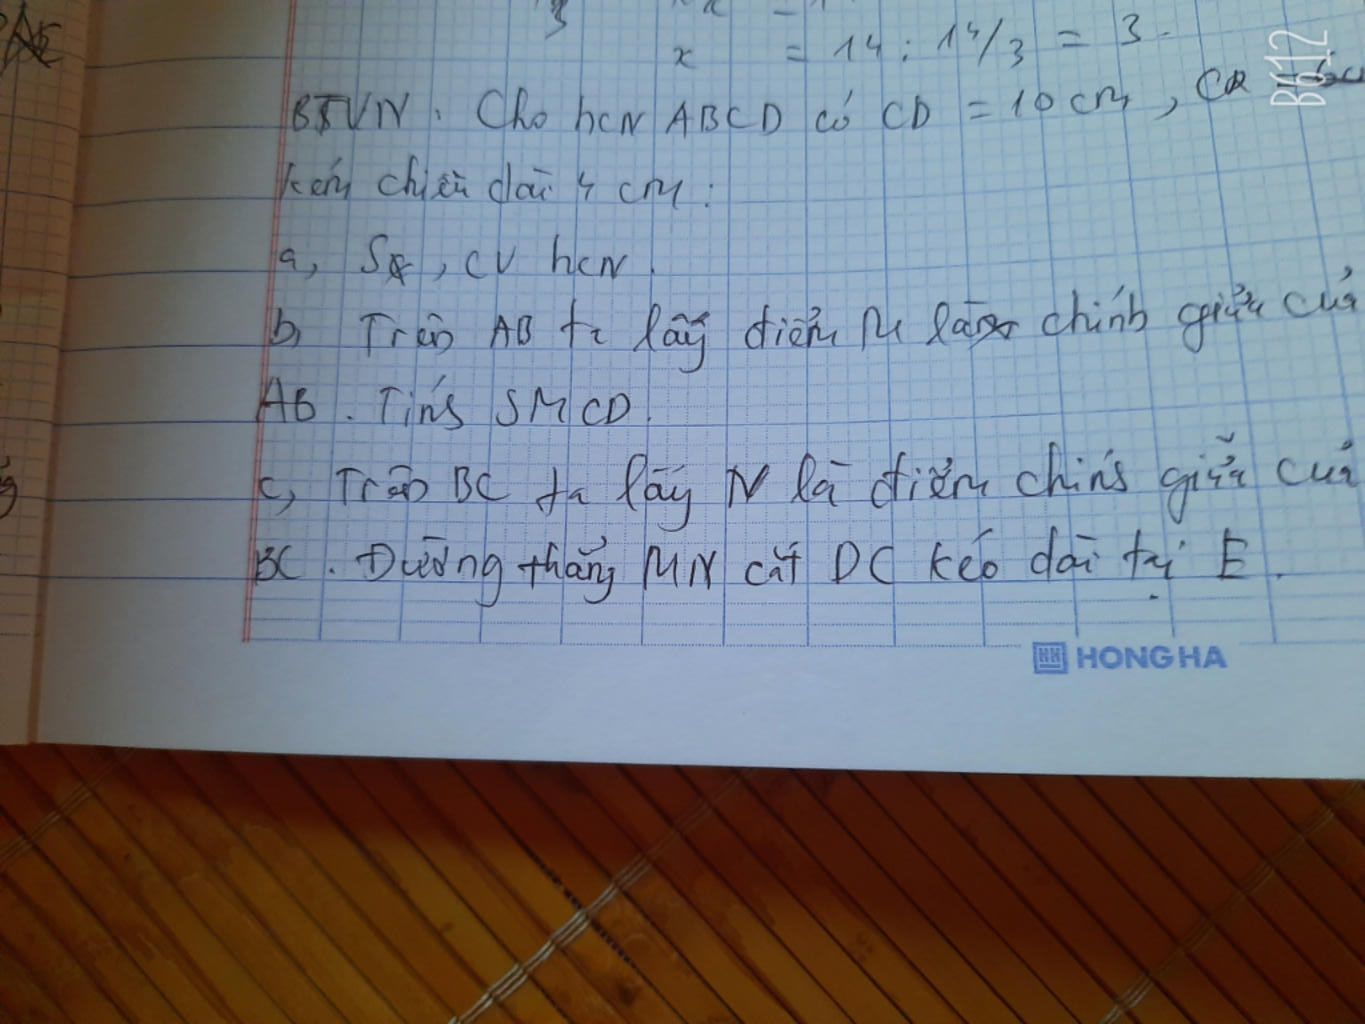 x = 14 : 14/3 = 3.
BTVN. Cho hcN ABCD có CD = 10 cm, CR
kém chiều dài 4 cm:
a, S, CV hcN.
b, Trên AB ta lấy điểm M là chính giữa của
AB. Tính SMCD.
c, Trên BC ta lấy N là điểm chính giữa của
BC. Đường thẳng MN cắt DC kéo dài tại E.
HH HONG HA